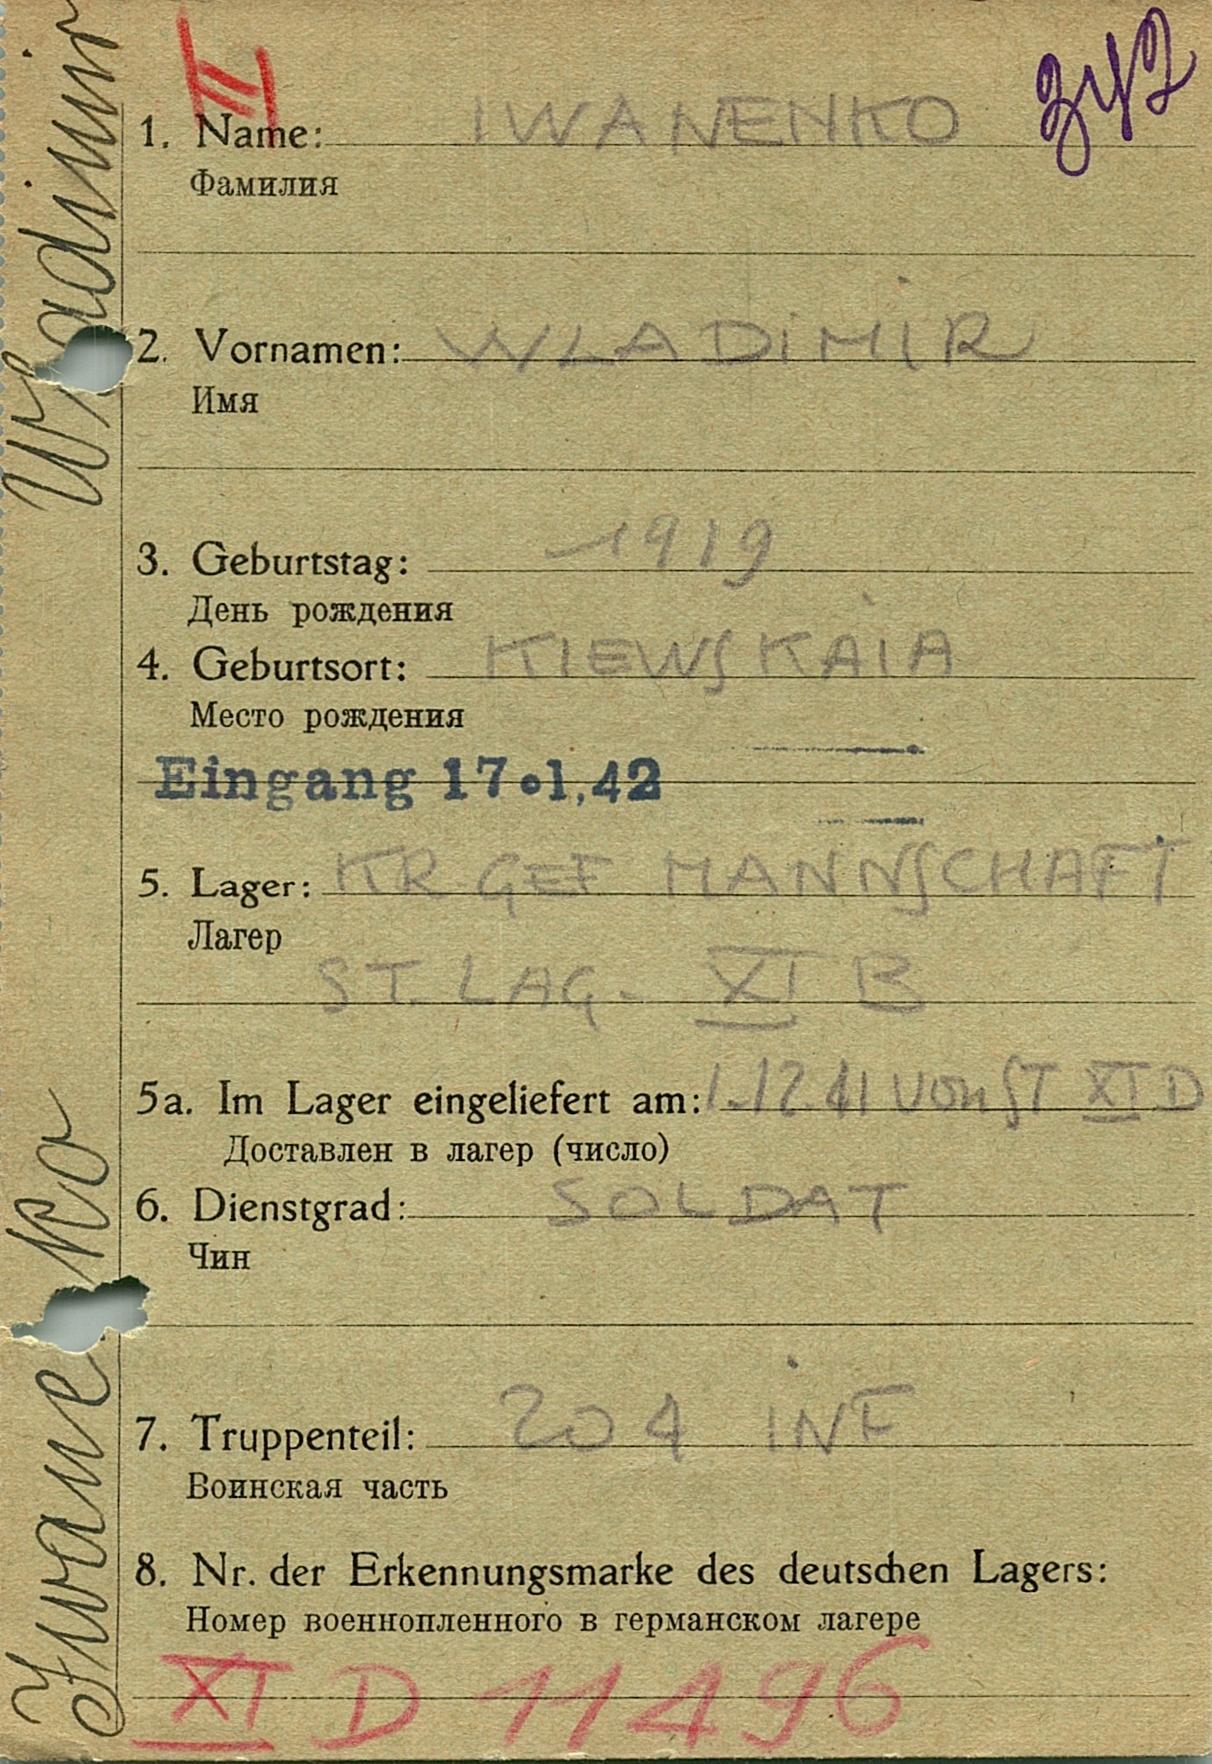 II
342
1. Name: IWANENKO
Фамилия
2. Vornamen: WLADIMIR
Имя
3. Geburtstag: 1919
День рождения
4. Geburtsort: KIEWSKAIA
Место рождения
Eingang 17.1.42
5. Lager: KR GEF MANNSCHAFT
Лагер
ST. LAG. XI B
5a. Im Lager eingeliefert am: 1.12 41 von ST XI D
Доставлен в лагер (число)
6. Dienstgrad: SOLDAT
Чин
7. Truppenteil: 204 INF
Воинская часть
8. Nr. der Erkennungsmarke des deutschen Lagers:
Номер военнопленного в германском лагере
XI D 11496
Iwanenko Wladimir